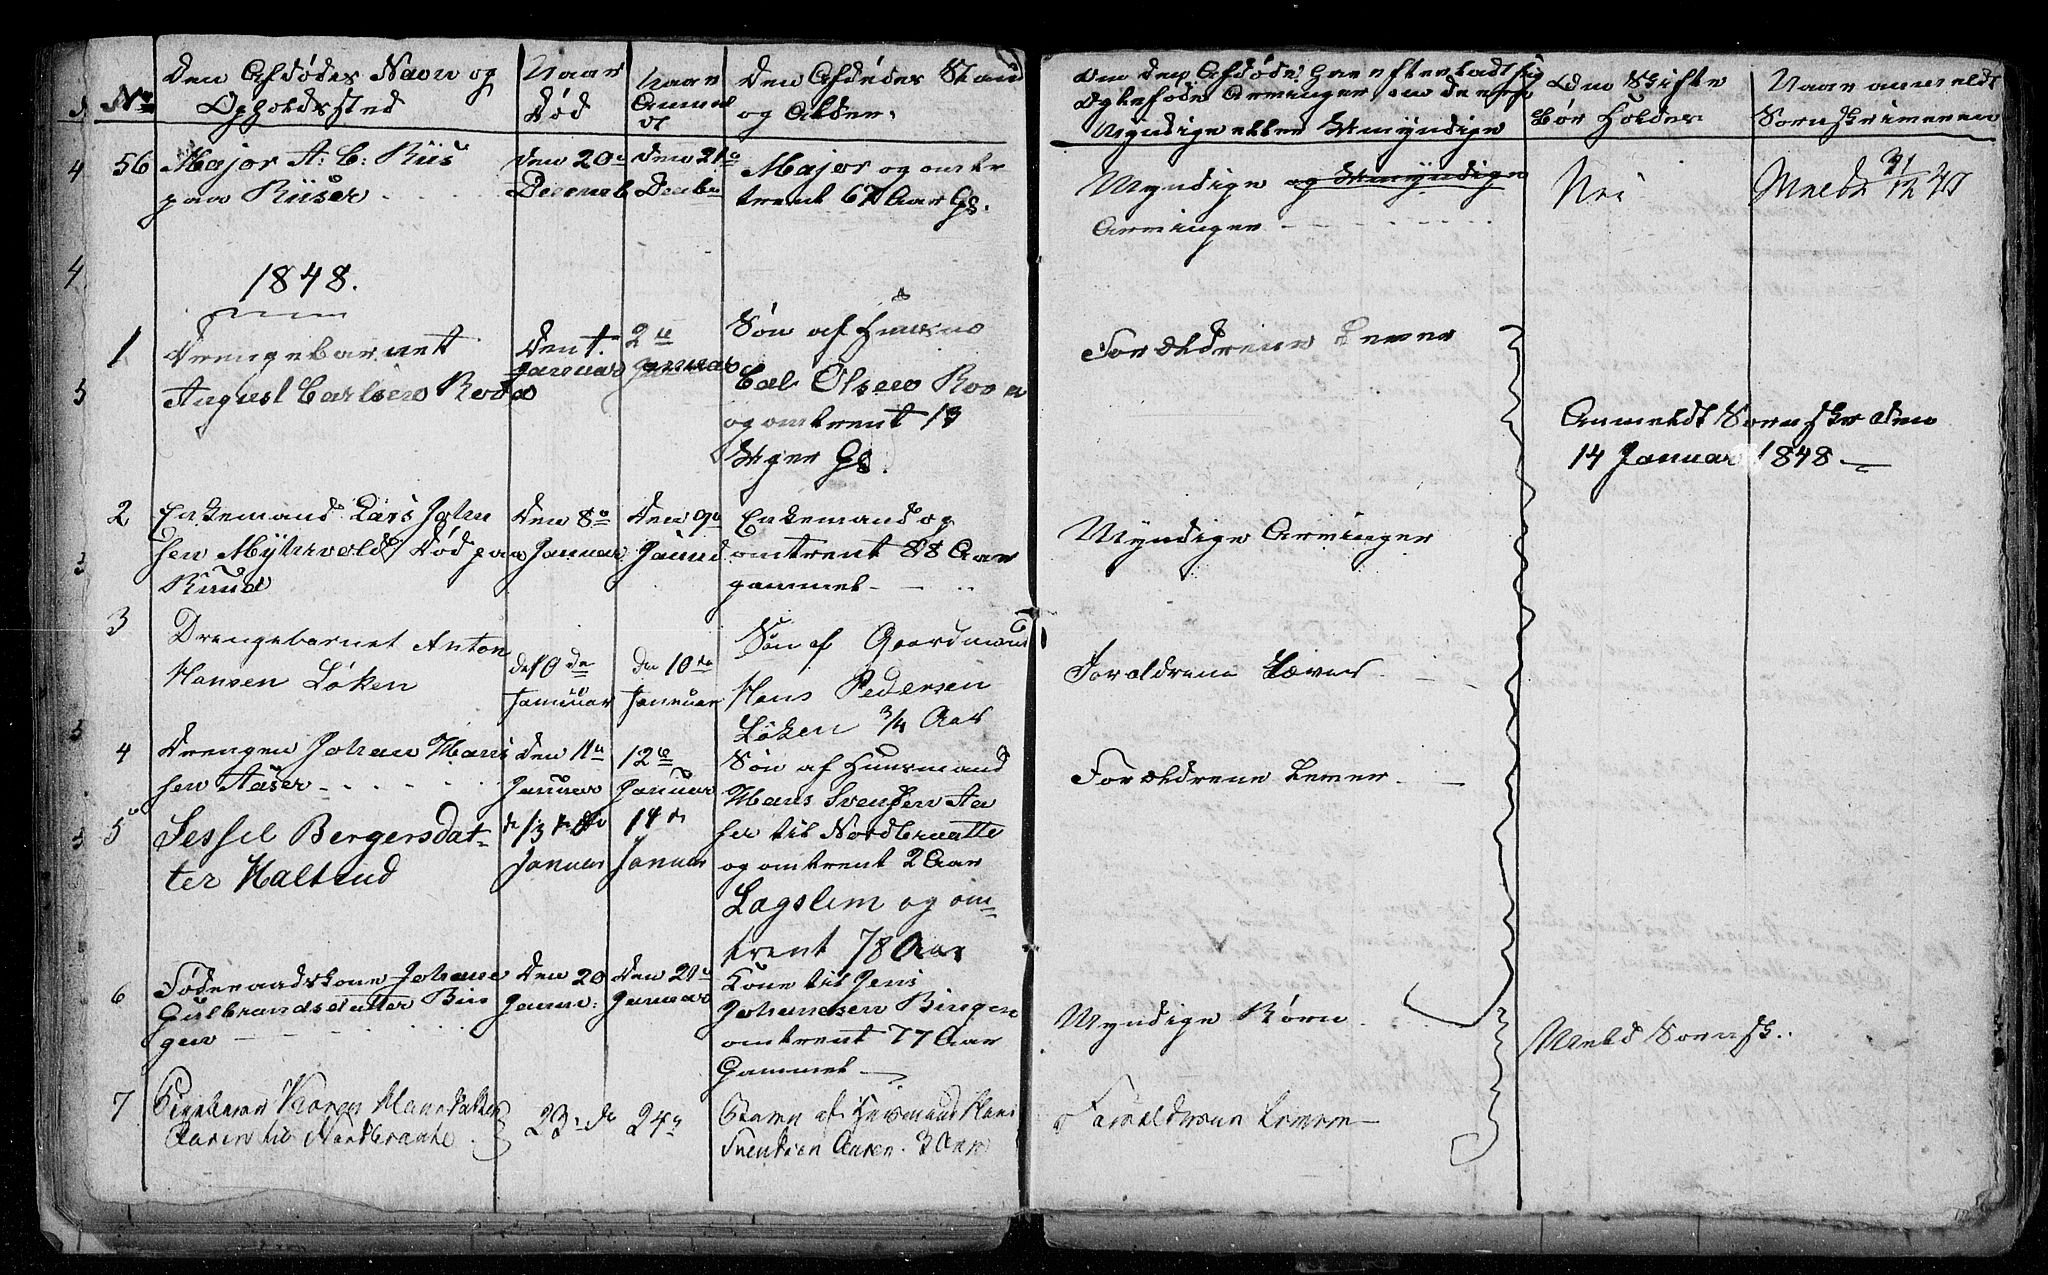 No
Den Afdødes Navn og
Opholdssted
Naar
Død
Naar
Anmel
dt
Den Afdødes Stand
og Alder.
Om den Afdøde har efterladt sig
Ægteføde Arvinger, om de ere
Myndige eller Umyndige
Om Skifte
bør Holdes
Naar anmeldt
Sorenskriveren
56
Major A: C: Riis
paa Riiser
Den 20de
Decemb
Den 21de
Decbr
Major og omtr
trent 67 Aar Gl.
Myndige og Umyndige
Arvinger
Nei
Meldt 31/12 47
1848.
1
Drengebarnet
August Carlsen Roea
Den 1.
Januar
2de
Januar
Søn af Huusm
Carl Olsen Roea
og omtrent 13
Uger Gl.
Forældrene Lever
Anmeldt Sorenskr den
14 Januar 1848
2
Enkemand Lars John
sen Myhrvold Død paa
Ruud
Den 8de
Januar
Den 9de
Januar
Enkemand og
omtrent 88 Aar
gammel
Myndige Arvinger
3
Drengebarnet Anton
Hansen Løken
de
Januar
den 10de
Januar
Søn af Gaardmand
Hans Pedersen
Løken 3/4 Aar
Forældrene Lever
4
Drengen Johan Han
sen Aaser
Den 11te
Januar
12te
Januar
Søn af Huusmand
Hans Svendsen Aa
ser til Nordbraatte
og omtrent 2 Aar
Forældrene Lever
5
Sessil Bergersdat-
ter Haltrud
13de
Januar
14de
Januar
Lægslem og om-
trent 78 Aar
6
Føderaadskone Johane
Gulbrandsdatter Bin
gen
Den 20
Janu:
Den 20de
Januar
Kone til Jens
Johansen Bingen
omtrent 77 Aar
Gammel
Myndige Børn
Meld Sorensk.
7
Pigebarn Karen Hansdatter
Aasen til Nordbraate
23de
24de
Barn af Huusmand Hans
Svendsen Aasen 3 Aar
Forældrene Leve